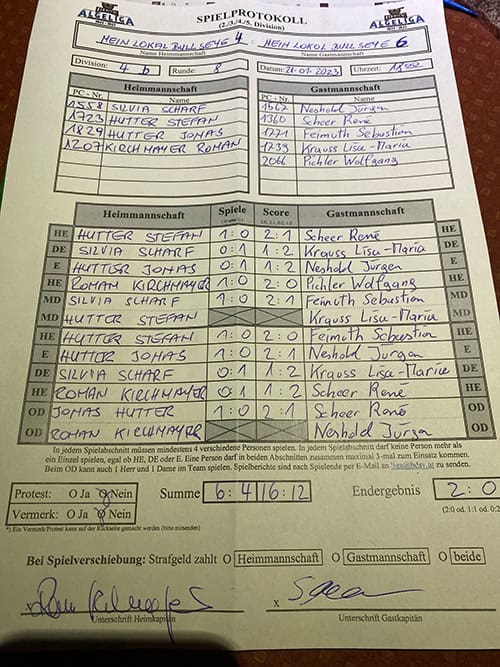 ALGELIGA
SPIELPROTOKOLL
(2./3./4./5. Division)
ALGELIGA
MEIN LOKAL BULLSEYE 4 : MEIN LOKAL BULLSEYE 6
Name Heimmannschaft Name Gastmannschaft
Division: 4 b Runde: 8 Datum: 21.01.2023 Uhrzeit:
Heimmannschaft Gastmannschaft
PC - Nr. Name PC - Nr. Name
1558 SILVIA SCHARF 1567 Neshold Jürgen
1723 HUTTER STEFAN 1360 Scheer René
1829 HUTTER JONAS 1771 Feimuth Sebastian
1207 KIRCHMAYER ROMAN 1739 Krauss Lisa-Maria
2066 Pichler Wolfgang
Heimmannschaft Spiele Score Gastmannschaft
HE HUTTER STEFAN 1:0 2:1 Scheer René HE
DE SILVIA SCHARF 0:1 1:2 Krauss Lisa-Maria DE
E HUTTER JONAS 0:1 1:2 Neshold Jürgen E
HE ROMAN KIRCHMAYER 1:0 2:0 Pichler Wolfgang HE
MD SILVIA SCHARF 1:0 2:1 Feimuth Sebastian MD
MD HUTTER STEFAN Krauss Lisa-Maria MD
HE HUTTER STEFAN 1:0 2:0 Feimuth Sebastian HE
E HUTTER JONAS 1:0 2:1 Neshold Jürgen E
DE SILVIA SCHARF 0:1 1:2 Krauss Lisa-Maria DE
HE ROMAN KIRCHMAYER 0:1 1:2 Scheer René HE
OD JONAS HUTTER 1:0 2:1 Scheer René OD
OD ROMAN KIRCHMAYER Neshold Jürgen OD
In jedem Spielabschnitt müssen mindestens 4 verschiedene Personen spielen. In jedem Spielabschnitt darf keine Person mehr als
ein Einzel spielen, egal ob HE, DE oder E. Eine Person darf in beiden Abschnitten zusammen maximal 3-mal zum Einsatz kommen.
Beim OD kann auch 1 Herr und 1 Dame im Team spielen. Spielberichte sind nach Spielende per E-Mail an zu senden.
Protest: O Ja O Nein Summe 6:4 16:12 Endergebnis 2:0
Vermerk: O Ja O Nein (2:0 od. 1:1 od. 0:2)
*) Ein Vermerk/Protest kann auf der Rückseite gemacht werden (bitte mitsenden)
Bei Spielverschiebung: Strafgeld zahlt O Heimmannschaft O Gastmannschaft O beide
x x
Unterschrift Heimkapitän Unterschrift Gastkapitän